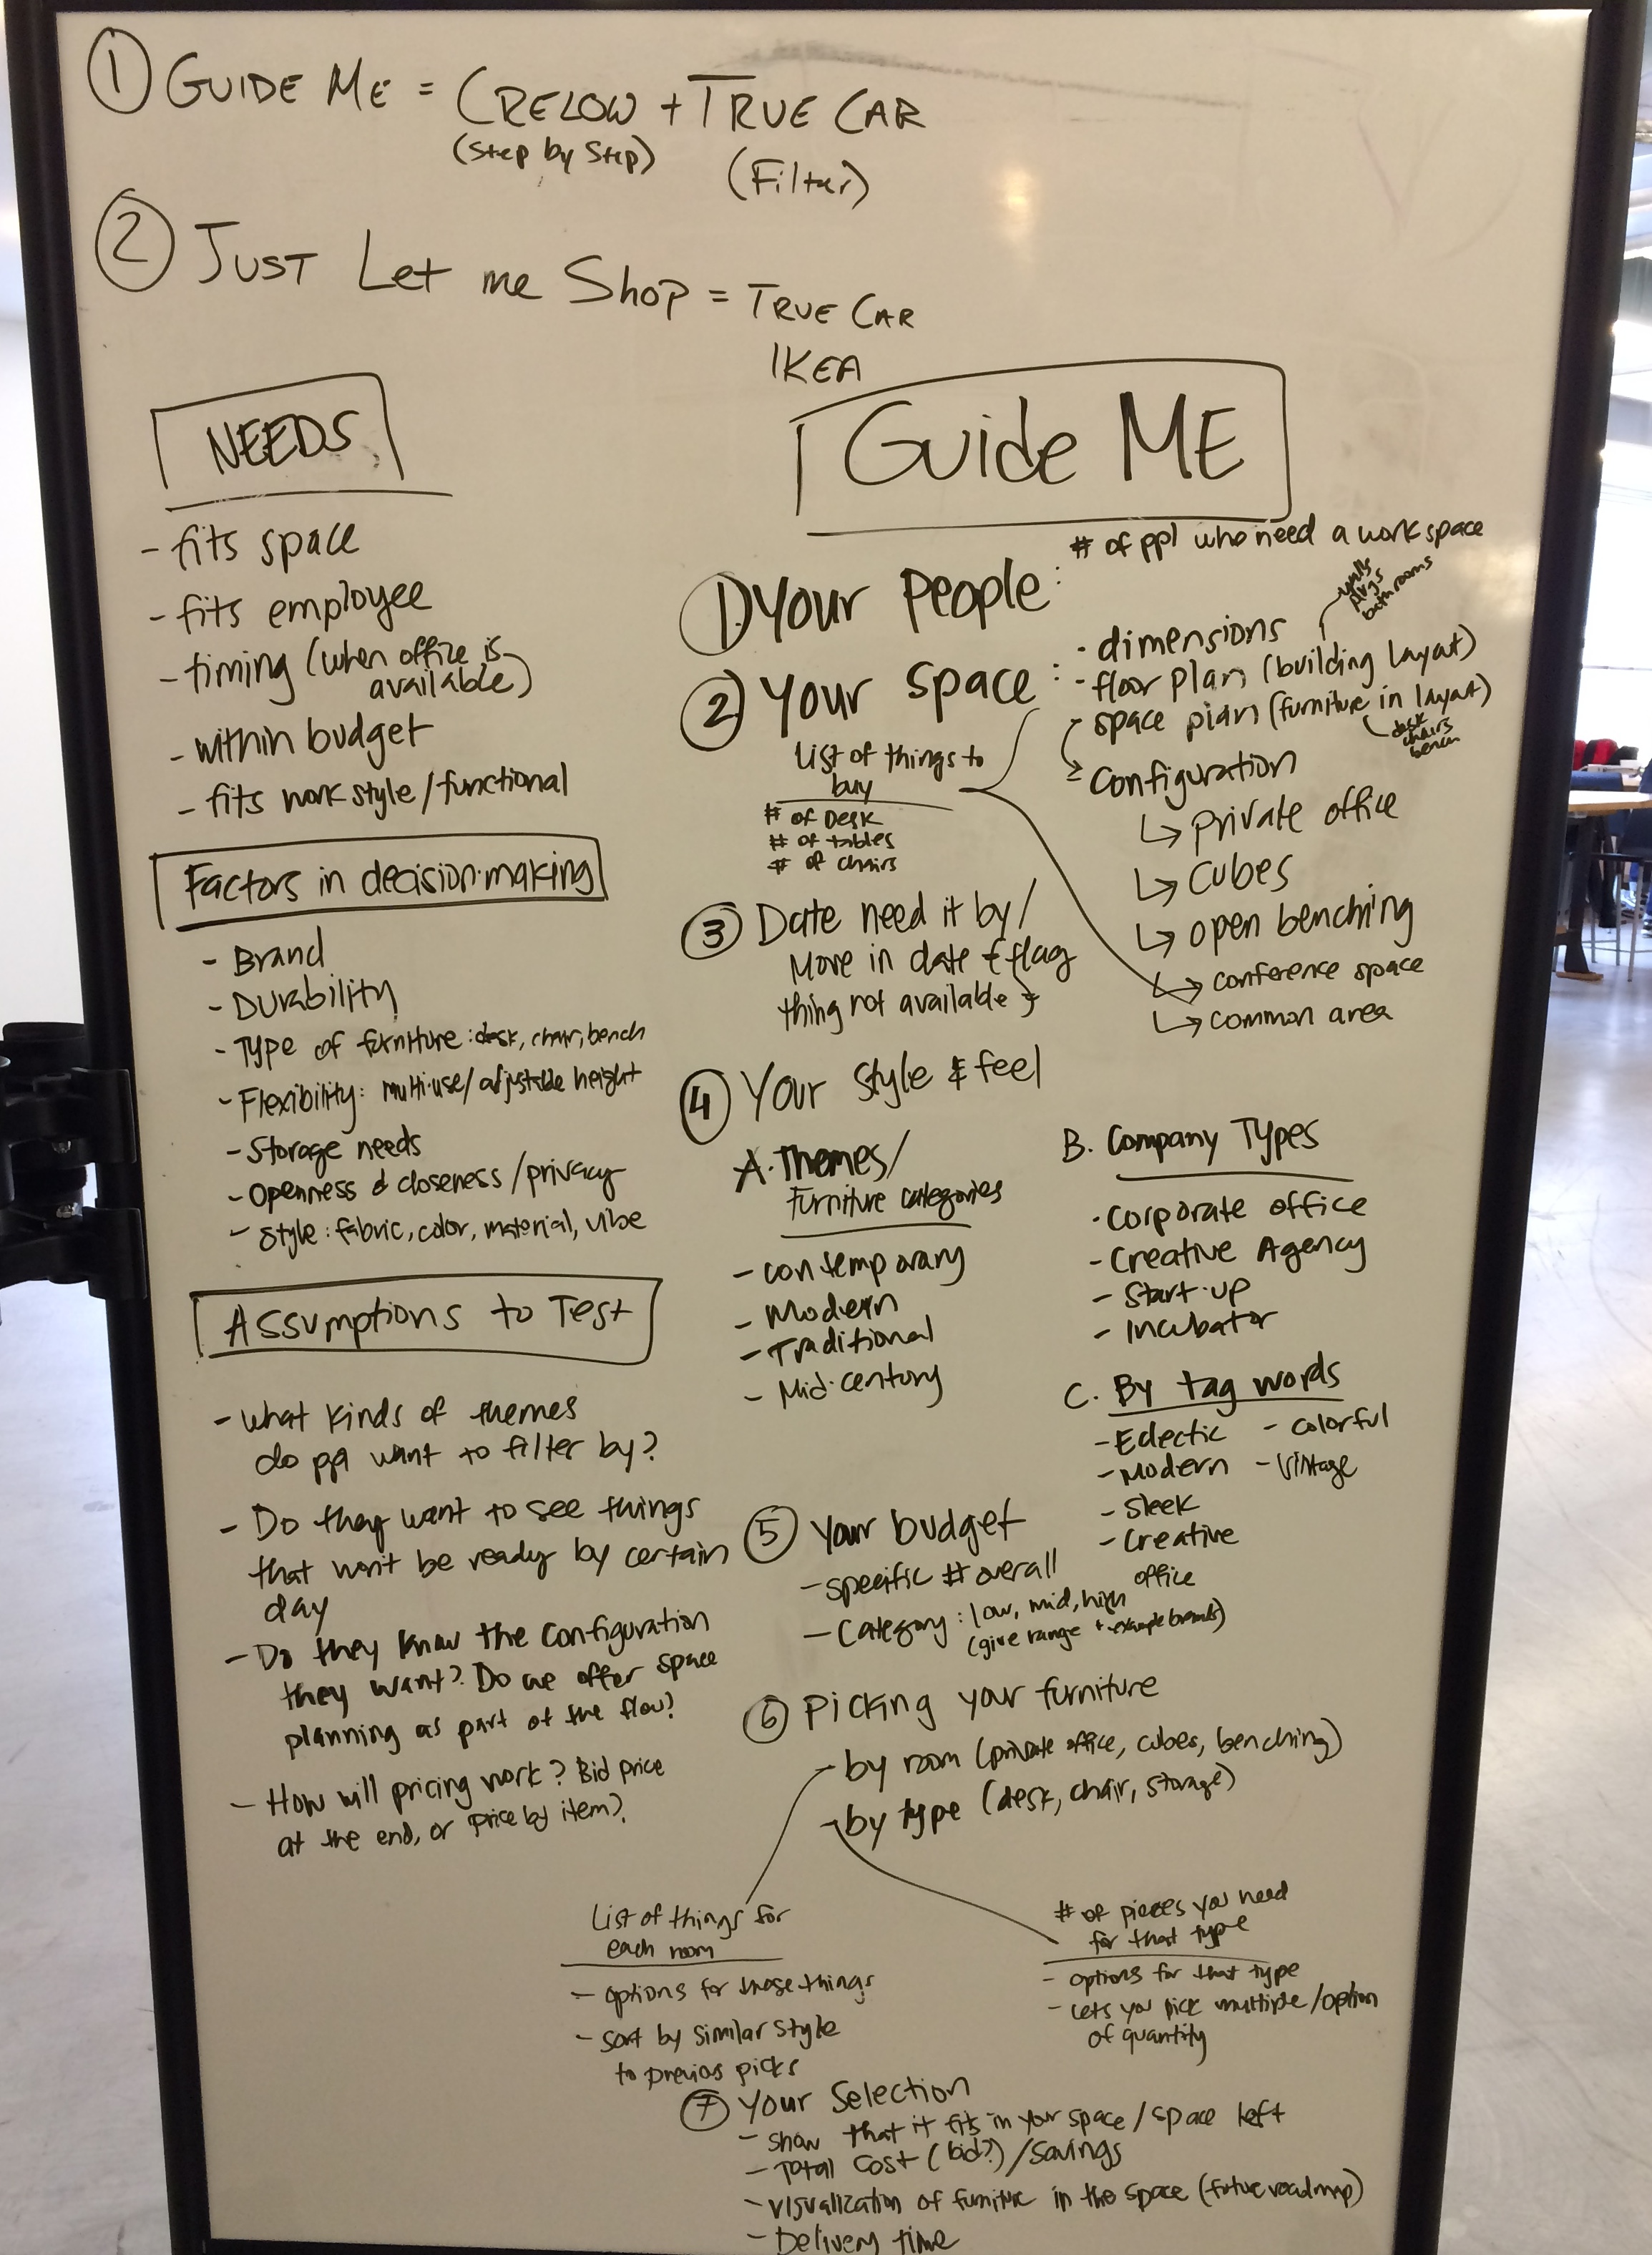 ① GUIDE ME = CRELOW + TRUE CAR
(Step by Step) (Filter)
② JUST Let me Shop = TRUE CAR
IKEA
NEEDS
- fits space
- fits employee
- timing (when office is
available)
- within budget
- fits work style/functional
Factors in decision-making
- Brand
- Durability
- Type of furniture: desk, chair, bench
- Flexibility: multi-use/adjustable height
- Storage needs
- Openness & closeness/privacy
- Style: fabric, color, material, vibe
Assumptions to Test
- What kinds of themes
do ppl want to filter by?
- Do they want to see things
that won't be ready by certain
day
- Do they know the configuration
they want? Do we offer space
planning as part of the flow?
- How will pricing work? Bid price
at the end, or price by item?
Guide ME
① Your People: # of ppl who need a workspace
② Your Space:
- dimensions
- floor plan (building layout)
walls
plugs
bathrooms
space plan (furniture in layout)
desk
chairs
bench
configuration
↳ private office
↳ cubes
↳ open benching
↳ conference space
↳ common area
List of things to
buy
# of Desk
# of tables
# of chairs
③ Date need it by/
Move in date & flag
thing not available
④ Your Style & feel
A. Themes/
Furniture categories
- contemporary
- Modern
- Traditional
- Mid-century
B. Company Types
- Corporate office
- Creative Agency
- Start-up
- Incubator
C. By tag words
- Eclectic - colorful
- Modern - Vintage
- Sleek
- Creative
office
⑤ Your budget
- specific # overall
- Category: low, mid, high
(give range + example brands)
⑥ Picking your furniture
- by room (private office, cubes, benching)
- by type (desk, chair, storage)
List of things for
each room
- options for those things
- sort by similar style
to previous picks
# of pieces you need
for that type
- options for that type
- Lets you pick multiple/option
of quantity
⑦ Your Selection
- show that it fits in your space/space left
- Total cost (bid?)/savings
- visualization of furniture in the space (future roadmap)
- Delivery time